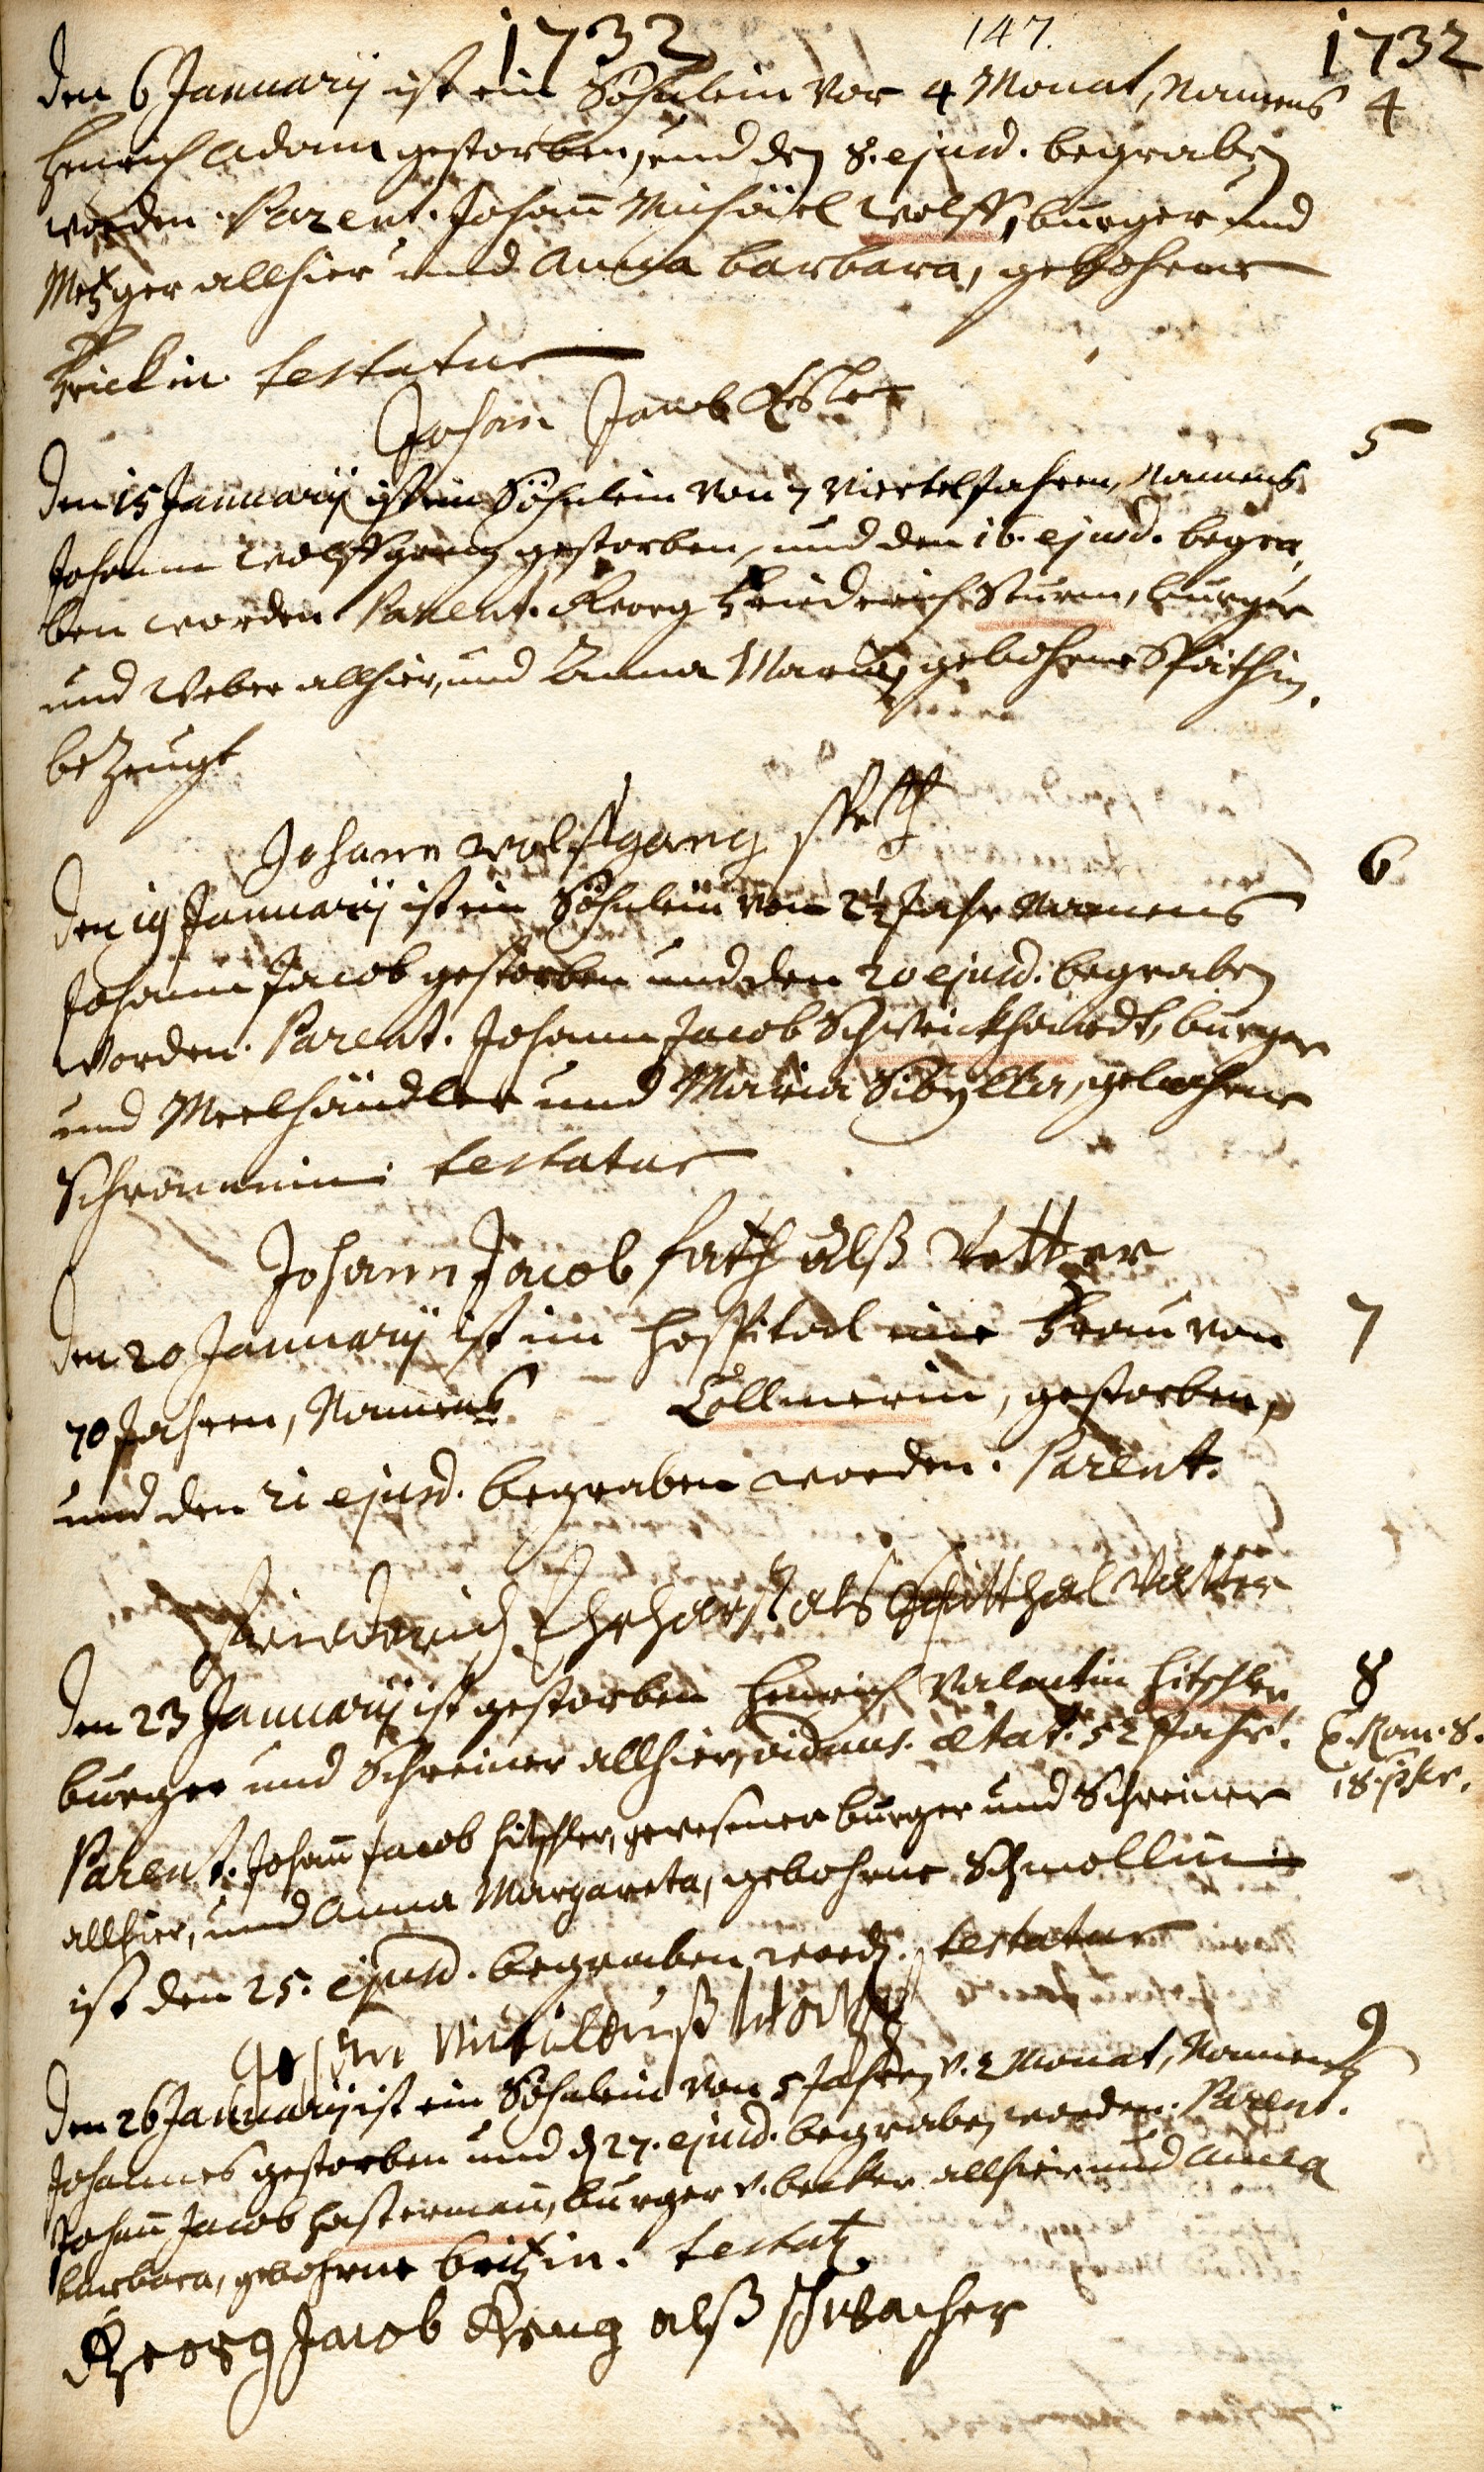 1732 147. 1732
den 6 Januarij ist ein Söhnlein von 4 Monat, Namens 4
Henrich Adam gestorben, und den 8. ejusd. begraben
worden. Parent. Johann Michäel Wolff, burger und
Metzger allhier und Anna Barbara, gebohrne
Frickin. testatur
Johan Jacob
den 15 Januarij ist ein Söhnlein von 7 Viertel Jahren, Namens 5
Johann Wolffgang gestorben, und den 16. ejusd. begra,
ben worden. Parent. Georg Friederich Sturm, burger
und Weber allhier, und Anna Maria, gebohrne Späthin.
bezeugt
Johann wolffgang
den 19 Januarij ist ein Söhnlein von 2½ Jahr Namens 6
Johann Jacob gestorben und den 20 ejusd. begraben
worden. Parent. Johann Jacob Schweickhardt, burger
und Meelhändler und Maria Sibylla, gebohrne
testatur
Johann Jacob fath alß Vetter
den 20 Januarij ist im Hospital eine Frau von 7
70 Jahren, Namens Collmerin, gestorben,
und den 21 ejusd. begraben worden. Parent.
Friederich Ehrhardt als Spitthal Vatter
den 23 Januarij ist gestorben Henrich Valentin Hitschler 8
burger und Schreiner allhier, viduus. ætat. 52 Jahr.
Parent. Johann Jacob Hitschler, gewesener burger und Schreiner 18.
allhier, und Anna Margareta, gebohrne Schmollin
ist den 25. ejusd. begraben word. testatur
den 26 Januarij ist ein Söhnlein von 5 Jahren v. 2 Monat, Namens 9
Johannes gestorben und d 27. ejusd. begraben worden. Parent.
Johann Jacob Hasterman, burger v. becker allhier und Anna
Barbara, gebohrne Britzin. testat.
Georg Jacob alß